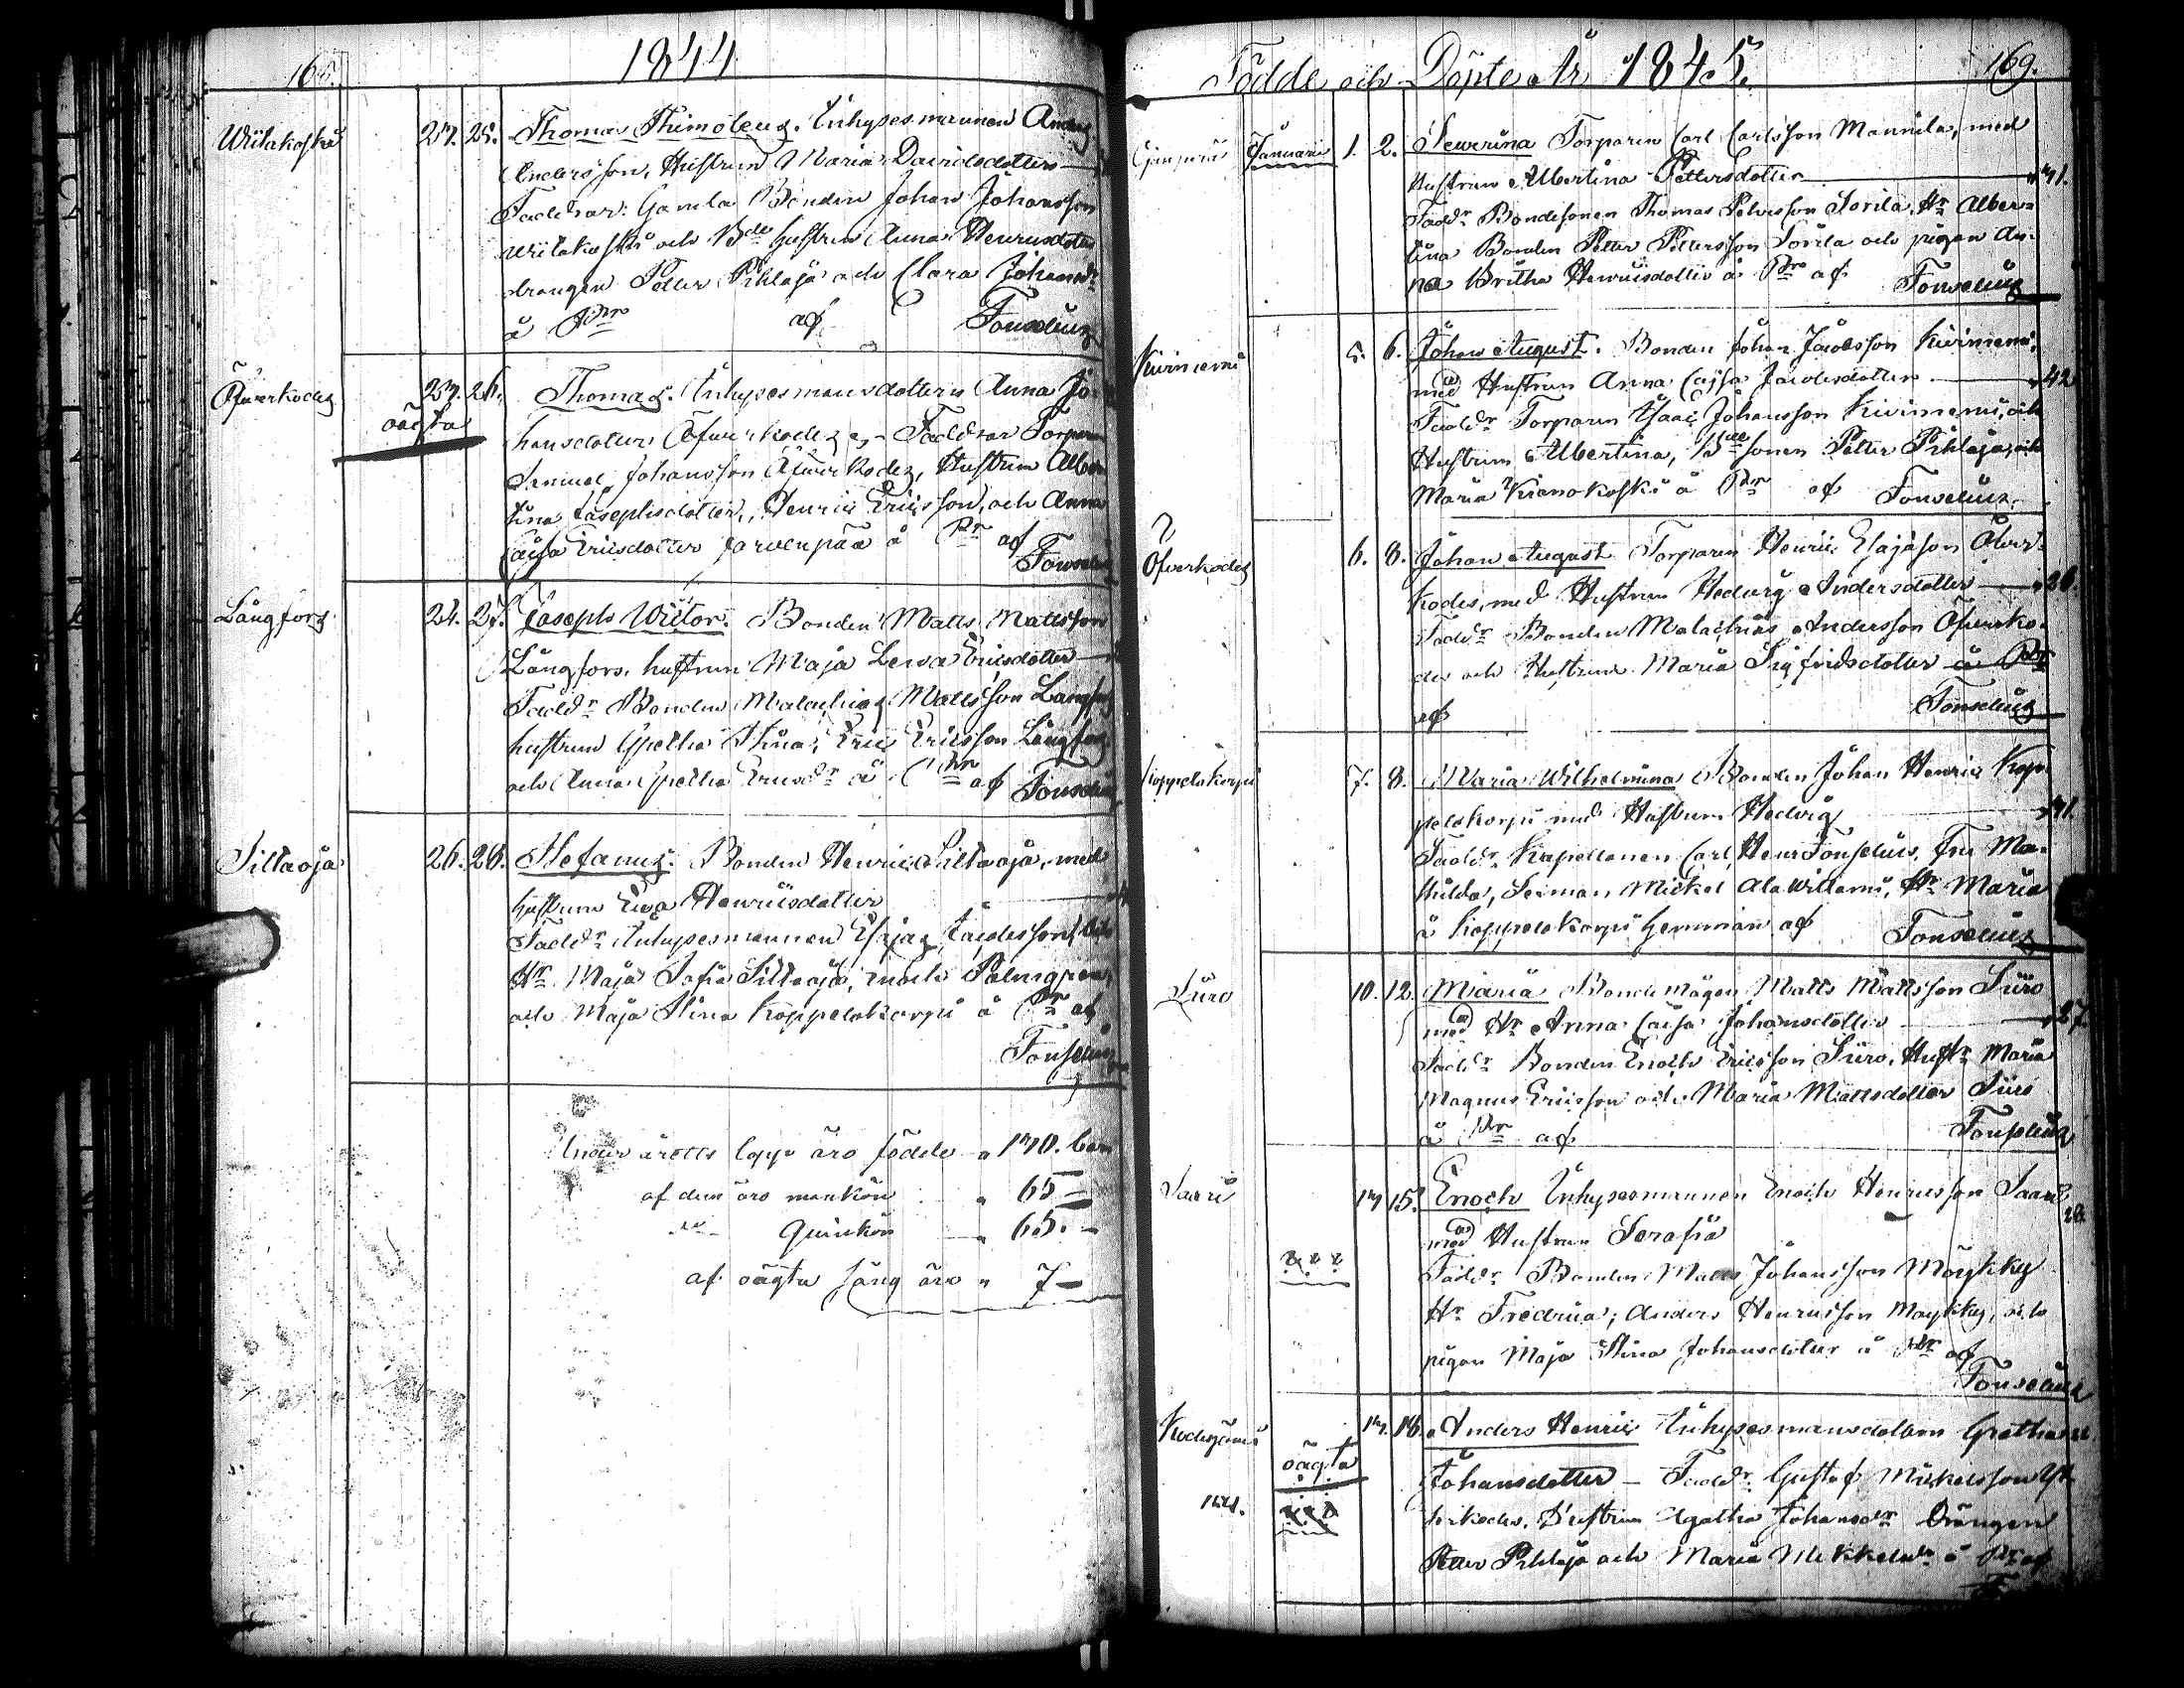 1844
Wiitakoski 23. 25. Thomas Thimoteus. Inhysesmannen Anders
Andersson, Hustrun Maria Davidsdotter
Faddrar: Gamla Bonden Johan Johansson
Wiitakoski och Bde hustrun Anna Henricsdotter
drängen Petter Pihlaja och Clara Johansdr
å Pr af Fonselius
Öfverkodes 23. 26. Thomas. Inhysesmansdottern Anna Jo-
oägta hansdotter Öfverkodes, Faddrar Torparen
Samuel Johansson Öfverkodes, Hustrun Alber
tina Josephsdotter, Henric Ericsson, och Anna
Caisa Ericsdotter Jarvenpää å Pr af
Fonselius
Långfors 24. 27. Joseph Wictor. Bonden Matts Mattsson
Långfors, hustrun Maja Lewa Ericsdotter
Faddr Bonden Malachias Mattsson Långfors
hustrun Greta Stina, Eric Ericsson Långfors
och Anna Greta Ericsdr å Pr af Fonselius
Siltaoja 26. 28. Stefanus. Bonden Henric Siltaoja, med
hustrun Ewa Henricsdotter
Faddr Inhysesmannen Esajas Jacobsson
Hr Maja Sofia Siltaoja, Enoch Palmgren
och Maja Stina Koppelokorpi å Pr af
Fonselius
Under årets lopp äro födde 130. barn
af dem äro mankön 65
qvinkön 65.
af oägta säng äro 7
Födde och Döpte År 1845. 169.
Januari 1. 2. Sewerina Torparen Carl Carlsson Mannila, med
Hustrun Albertina Pettersdotter 31.
Faddr Bondesonen Thomas Petersson Sorila, Hr Alber=
tina Bonden Petter Pettersson Sorila och pigan An-
na Britha Henricsdotter å Pr af Fonselius
Kiviniemi 5. 6. Johan August. Bonden Johan Jacobsson Kiviniemi,
med Hustrun Anna Cajsa Jacobsdotter 42
Faddr Torparen Isaac Johansson Kiviniemi, och
Hustrun Albertina, Bde sonen Petter Pihlaja, och
Maria Kranokoski å Pr af Fonselius.
Öfverkodes 6. 8. Johan August Torparen Henric Esajason Öfver-
kodes, med Hustrun Hedwig Andersdotter 26.
Faddr Bonden Malachias Andersson Öfverko-
des och Hustrun Maria Sigfridsdotter å Pr
af Fonselius
Koppelokorpi 7. 8. Maria Wilhelmina Bonden Johan Henric Kop-
pelokorpi med Hustrun Hedvig 31.
Faddr Kapellanen Carl Henr Fonselius, Fru Ma-
thilda, Michel Alawillami, Hr Maria
å Koppelokorpi Hemman af Fonselius
Siiro 10. 12. Maria Bondemågen Matts Mattsson Siiro
med Hr Anna Caisa Johansdotter 27
Faddr Bonden Enoch Ericsson Siiro, Hustr Maria
Magnus Ericsson och Maria Mattsdotter Siiro
å Pr af Fonselius
Saari 13 15. Enoch Inhysesmannen Enoch Henricsson Saari
med Hustrun Serafia 28
Faddr Bonden Matts Johansson Möykky
Hr Fredrica; Anders Henricsson Möykky, och
pigan Maja Stina Johansdotter å Pr af
Fonselius
17. 18. Anders Henric Inhysesmansdottern Gretha
oägta Johansdotter – Faddr Gustaf Mickelsson
Hustrun Agatha Johansdr Drängen
Petter Pihlaja och Maria Mikkelsdr å Pr af